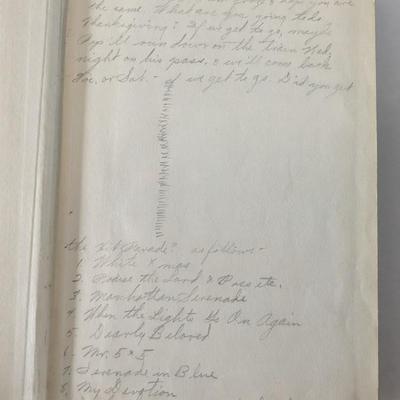 the same. What are you going to do
Thanksgiving? If we get to go, maybe
Pop & I'll run down on the train Wed.
night on his pass, & we'll come back
or Sat. - if we get to go. Did you get
the Hit Parade? as follows -
1. White Xmas
2. Praise the Lord & Pass etc.
3. Manhattan Serenade
4. When the Lights Go On Again
5. Dearly Beloved
6. Mr. 5 x 5
7. Serenade in Blue
8. My Devotion